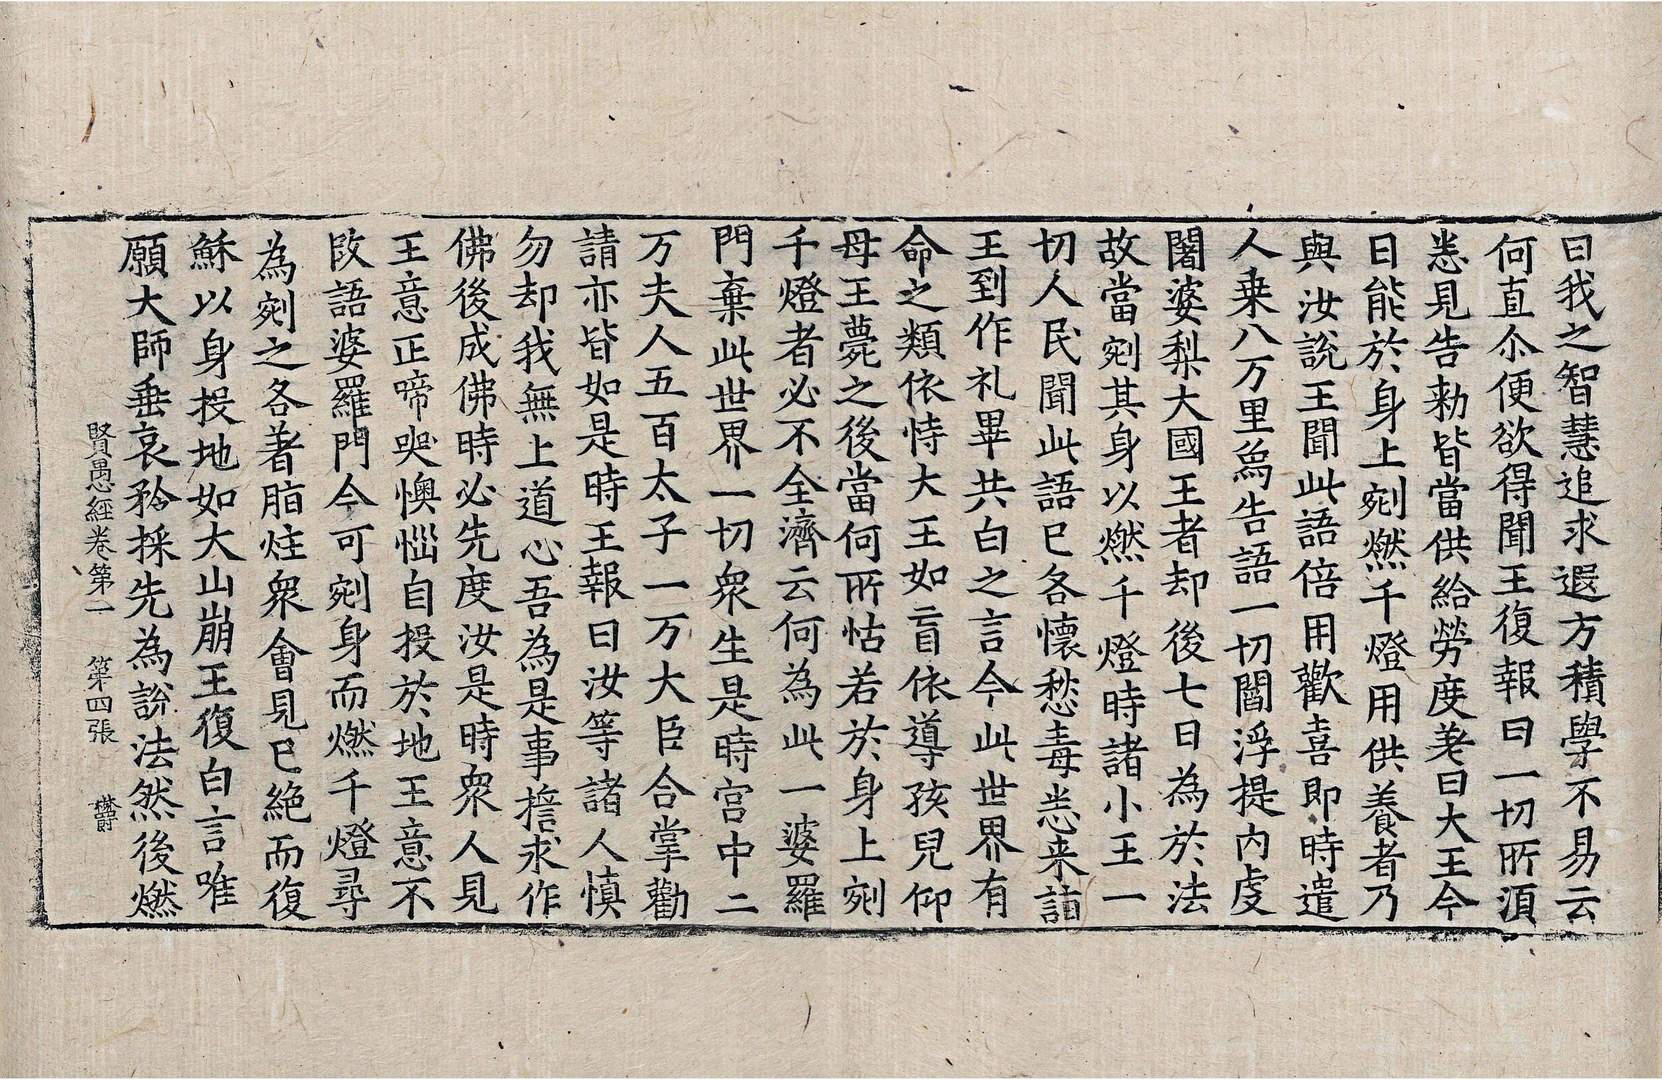 曰我之智慧追求遐方積學不易云
何直尒便欲得聞王復報曰一切所湏
悉見告勑皆當供給勞度差曰大王今
日能於身上剜燃千燈用供養者乃
與汝說王聞此語倍用歡喜即時遣
人乗八万里象告語一切閻浮提内虔
闍婆梨大國王者却後七日為於法
故當剜其身以燃千燈時諸小王一
切人民聞此語已各懷愁毒悉来詣
王到作礼畢共白之言今此世界有
命之類依恃大王如盲依導孩兒仰
母王薨之後當何所怙若於身上剜
千燈者必不全濟云何為此一婆羅
門棄此世界一切衆生是時宮中二
万夫人五百太子一万大臣合掌勸
請亦皆如是時王報曰汝等諸人慎
勿却我無上道心吾為是事擔求作
佛後成佛時必先度汝是時衆人見
王意正啼哭懊惱自投於地王意不
改語婆羅門今可剜身而燃千燈尋
為剜之各著脂炷衆會見已絶而復
穌以身投地如大山崩王復白言唯
願大師垂哀矜採先為說法然後燃
賢愚經卷第一 第四張 欝